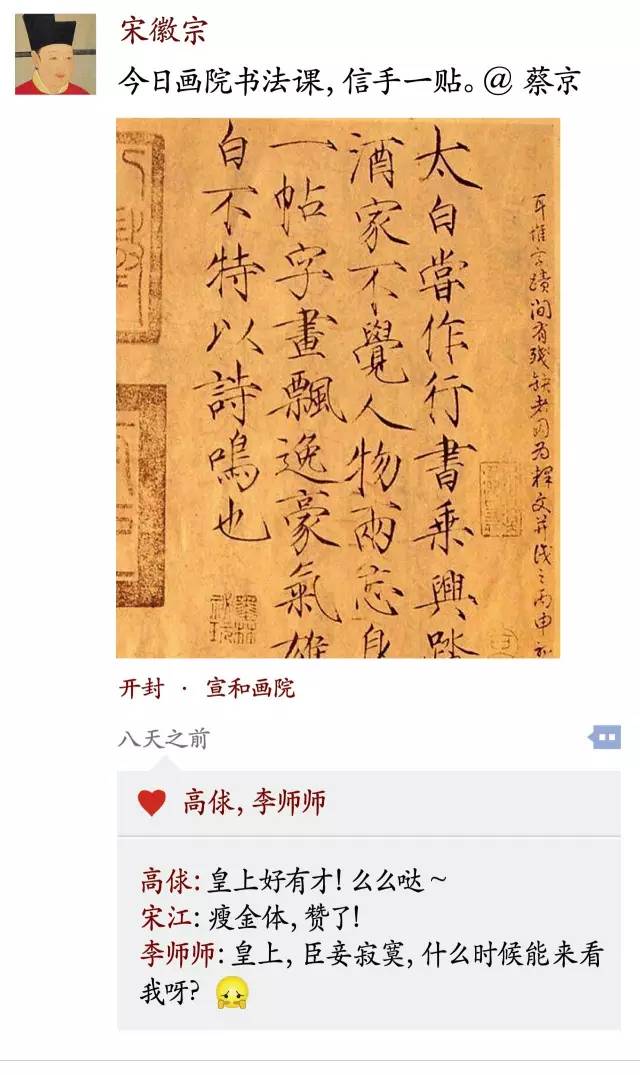 宋徽宗
今日画院书法课，信手一贴。@ 蔡京
太白嘗作行書乘興踏
酒家不覺人物兩忘身
一帖字畫飄逸豪氣雄
自不特以詩鳴也
开封 · 宣和画院
八天之前
高俅，李师师
高俅：皇上好有才！么么哒~
宋江：瘦金体，赞了！
李师师：皇上，臣妾寂寞，什么时候能来看
我呀？